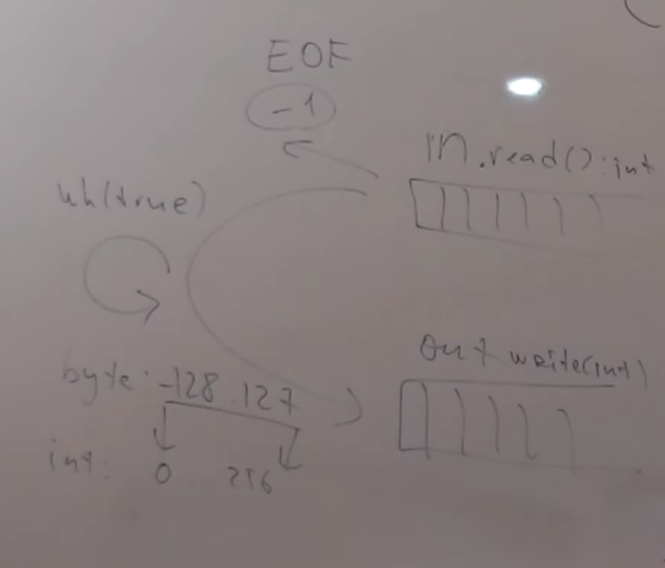 EOF
-1
in.read():int
wh(true)
out.write(int)
byte:-128.127
int: 0 256